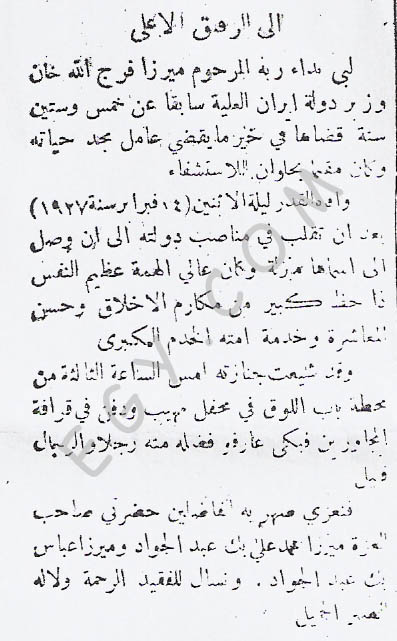 الى الرفيق الاعلى
لبي نداء ربه المرحوم ميرزا فرج الله خان
وزير دولة ايران العلية سابقا عن خمس وستين
سنة قضاها في خير ما يقضي عامل مجد حياته
وكان مقيما بحلوان للاستشفاء
وافاه القدر ليلة الاثنين (١٤ فبراير سنة ١٩٢٧)
بعد ان تقلب في مناصب دولته الى ان وصل
الى اسماها منزلة وكان عالي الهمة عظيم النفس
ذا حظ كبير من مكارم الاخلاق وحسن
المعاشرة وخدمة امته الخدم الكبرى
وقد شيعت جنازته امس الساعة الثالثة من
محطة باب اللوق في محفل مهيب ودفن في قرافة
المجاورين فبكى عارفو فضله منه رجلا والرجال
قليل
فنعزي صهريه الفاضلين حضرتي صاحب
العزة ميرزا محمد علي بك عبد الجواد وميرزا عباس
بك عبد الجواد . ونسأل للفقيد الرحمة ولآله
الصبر الجميل
EGY.COM